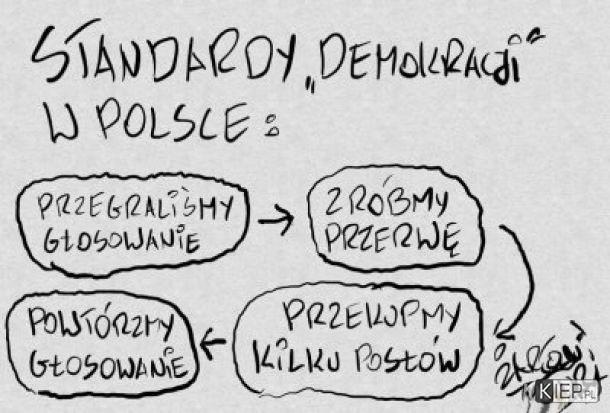 STANDARDY „DEMOKRACJI"
W POLSCE:
PRZEGRALIŚMY
GŁOSOWANIE
ZRÓBMY
PRZERWĘ
PRZEKUPMY
KILKU POSŁÓW
POWTÓRZMY
GŁOSOWANIE
KIER.PL